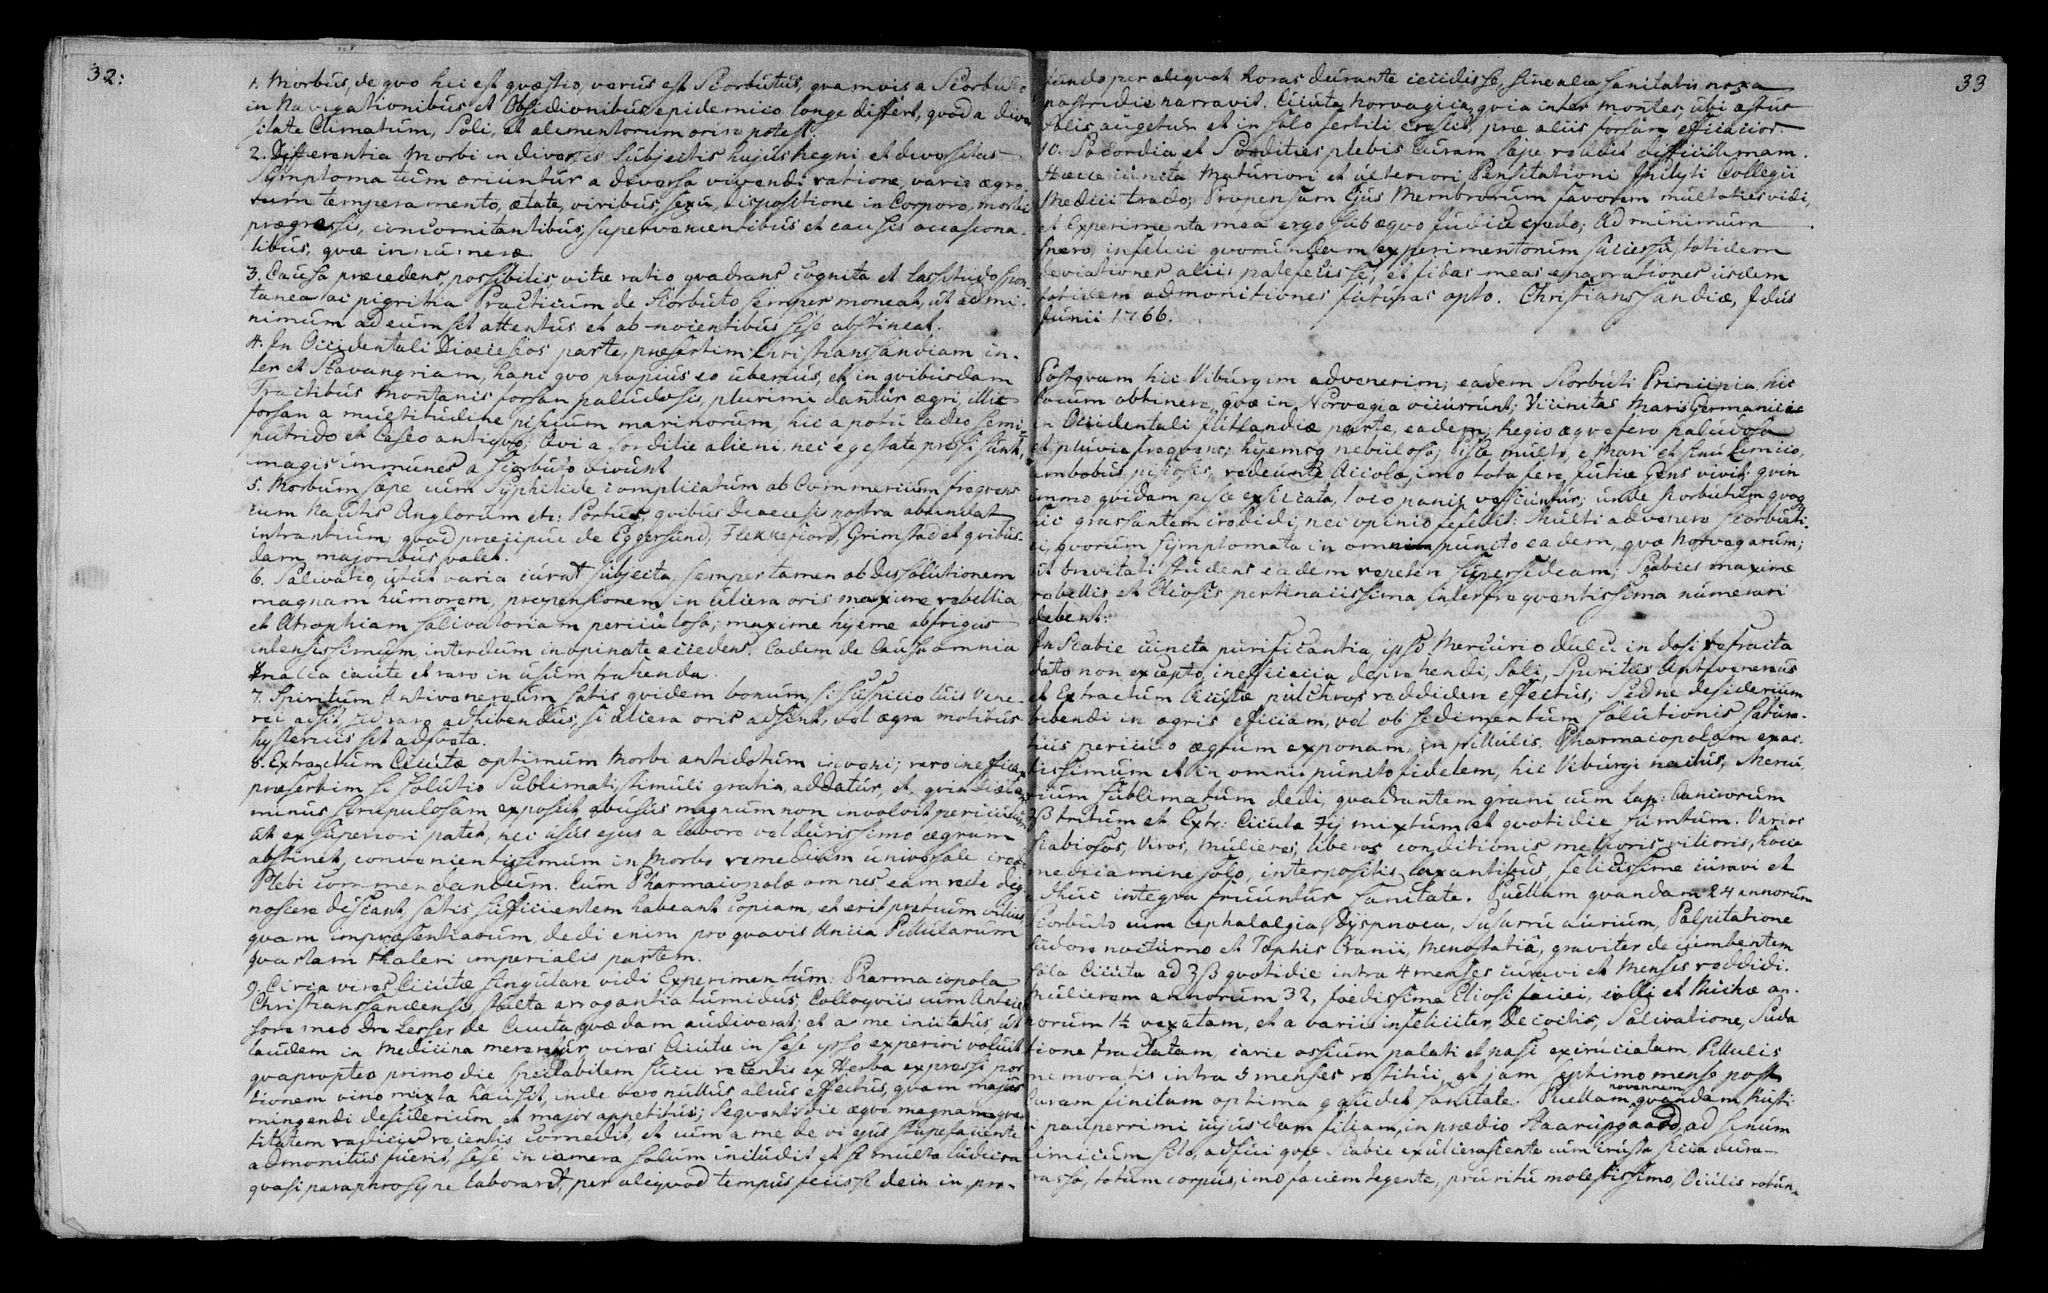 32:
1. Morbus, de qvo hic est qvæstio, verus est Scorbutus, qvamvis a Scorbuto
in Navigationibus et Obsidionibus epidemico longe differt, qvod a diver
sitate Climatum, Soli, et alimentorum oriri potest.
2. Differentia Morbi in diversis Subjectis hujus Regni et diversitas
Symptomatum oriuntur a diversa vivendi ratione, vario ægro
rum temperamento, ætate, viribus, sexu, dispositione in Corpore, morbis
prægressis, concomitantibus, supervenientibus et causis occasiona-
libus, qvæ innumeræ.
3. Causa præcedens, possibilis, vitæ ratio qvadrans cognita et lassitudo spon
tanea ac pigritia Practicum de Scorbuto semper moneat, ut ad mi-
nimum ad eum sit attentus et ab nocentibus sese abstineat.
4. In Occidentali Dioeceseos parte, præsertim Christianssandiam in-
ter et Stavangriam, hanc qvo propius eo uberius, et in qvibusdam
Tractibus Montanis forsan paludosis, plurimi dantur ægri, illic
forsan a multitudine piscium marinorum, hic a potu lacteo semi-
putrido et Caseo antiqvo; Qvi a sorditie alieni, nec egestate pressi sunt,
magis immunes a scorbuto vivunt.
5. Morbum sæpe cum Syphilide complicatum ob Commercium freqvens
cum Nautis Anglorum etc: Portus, qvibus Dioecesis nostra abundat
intrantium, qvod præcipue de Eggersund, Flekkefiord, Grimstad et qvibus
dam majoribus valet.
6. Salivatio, utut varia curat subjecta, semper tamen ob dissolutionem
magnam humorem, propensionem in ulcera oris maxime rebellia
et Atrophiam salivatoriam periculosa; maxime hyeme ob frigus
intensissimum, interdum inopinate accedens. Eadem de Causa omnia
&nalia caute et raro in usum trahenda.
7. Spiritum Antivenereum satis qvidem bonum, si suspicio luis Vene
rei adsit, sed raro adhibendus, si ulcera oris adsint, vel ægra motibus
hystericis sit adsveta.
8. Extractum Cicutæ optimum Morbi antidotum inveni; raro inefficax
præsertim si Solutio Sublimati, stimuli gratia, addatur, et qvia Diætam
minus scrupulosam exposcit abusus magnum non involvit periculum
ut ex superiori patet, nec usus ejus a labore vel durissimo ægrum
abstinet, convenientissimum in Morbo remedium universale credo
Plebi commendandum. Cum Pharmacopolæ omnes eam recte dig
noscere discant, satis sufficientem habeant copiam, et erit pretium vilius
qvam impræsentiarum, dedi enim pro qvavis Uncia Pillularum
qvartam thaleri imperialis partem.
9. Circa vires Cicutæ singulare vidi Experimentum: Pharmacopola
Christianssandensis stulta arrogantia tumidus Colloqviis cum Anteces
sore meo Dn. Lesser de Cicuta qvædam audiverat; et a me incitatus, ut
laudem in Medicina mereretur vires Cicutæ in sese ipso experiri voluit
qvapropter primo die spectabilem succi recentis ex Herba expressi por
tionem vino mixta hausit, inde vero nullus alius effectus, qvam majus
mingendi desiderium et major appetitus; Seqventi die æqve magnam qvan
titatem radicis recentis comedit, et cum a me de vi ejus stupefaciente
admonitus fuerit, sese in camera solum inclusit et se multa ludicra
qvasi paraphrosyne laboraret, per aliqvod tempus fecisse dein in pro-
33
fundo per aliqvot horas durante cecidisse, sine alia sanitatis noxa
postridie narravit. Cicuta Norvagica, qvia inter montes, ubi æstus
solis augetur et in solo fertili crescit, præ aliis forsan efficacior.
10. Socordia et Sordities plebis Curam sæpe reddit difficillimam.
Hæcce cuncta Maturiori et ulteriori Pensitationi Inclyti Collegii
Medici trado; Propensum Ejus Membrorum favorem multoties vidi,
et Experimenta mea ergo sub æqvo judice credo; Ad minimum
spero, infelici qvorundam experimentorum successu, totidem
deviationes aliis patefecisse, et fidas meas enarrationes iisdem
totidem admonitiones futuras opto. Christianssandiæ, Idus
Junii 1766.
Postqvam hic Viburgim advenerim, eadem Scorbuti Principia hic
locum obtinere qvæ in Norvegia occurrunt; Vicinitas Maris Germanici
in Occidentali Jutlandiæ parte, eadem; Regio æqve fere paludosa
et pluvia freqvens; hyemsq nebulosa; Pisce multo, e Mari et sinu Limico,
ambobus piscosis, redeunte Accolæ, imo tota fere Jutiæ Gens vivit, qvin
immo qvidam pisce exsiccata, loco panis vescuntur; unde scorbutum qvoq
hic grassantem credidi, nec opinio fefellit: Multi advenere scorbuti-
ci, qvorum symptomata in omni puncto eadem, qvæ Norvagorum;
ut brevitati studens eadem repetere supersedeam; Scabies maxime
rebellis et Eliosis pertinacissima inter freqventissima numerari
debent:
In Scabie cuncta purificantia, ipso Mercurio dulci in dosi refracta
dato non excepto, inefficacia deprehendi, Soli, Spiritus Antivenereus
et Extractum Cicutæ pulchros reddidere effectus; Sed ne desiderium
bibendi in ægris efficiam, vel ob sedimentum solutionis satura-
tius periculo ægrum exponam, in pillulis, Pharmacopolam exac-
tissimum et in omni puncto fidelem, hic Viburgi nactus, Mercu-
rium sublimatum dedi, qvadrantem grani cum lap: Cancrorum
ʒß tritum et Extr: Cicuta ʒij mixtum et qvotidie sumtum. Varios
Scabiosos, Viros, mulieres, liberos conditionis melioris, vilioris, hocce
medicamine solo, interpositis laxantibus, felicissime curavi et
adhuc integra fruuntur sanitate. Puellam qvandam 24 annorum
Scorbuto cum Cephalalgia, Dyspnoea, Susurru aurium, Palpitatione
Sudore nocturno et Tophis Cranii, Menostatiâ, graviter decumbentem
sola Cicuta ad ʒß qvotidie intra 4 menses curavi et Menses reddidi.
Mulierem annorum 32, foedissima Eliosi faciei, colli et Nuchæ an-
norum 1½ vexatam, et a variis infeliciter, Decoctis, Salivatione, Suda
tione tractatam, carie ossium palati et nasi excruciatam, Pillulis
memoratis intra 5 menses restitui, et jam septimo mense post
Curam finitam optima gaudet sanitate. Puellam qvandam novennem, Rusti
ci pauperrimi cujusdam filiam, in prædio Staarupgaard, ad sinum
Limicum sito, adfui qvæ Scabie exulcerascente cum crusta sicca dura-
crassa, totum corpus, imo faciem tegente, pruritu molestissimo, Oculis rotun-